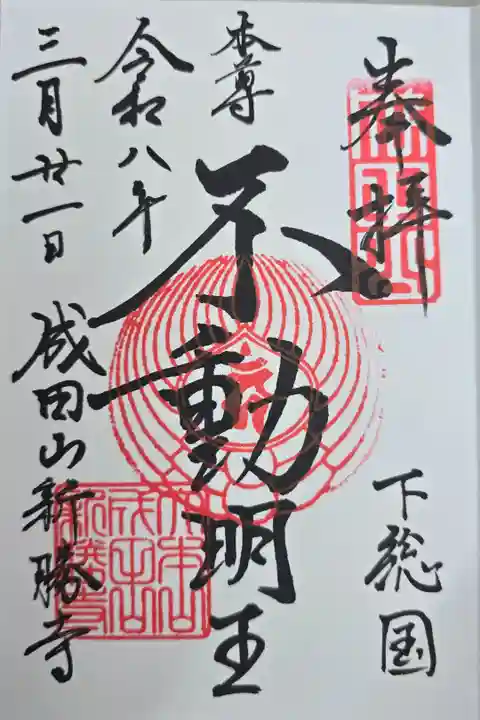 奉拝
下総国
本尊
不動明王
令和八年
三月廿一日
成田山新勝寺